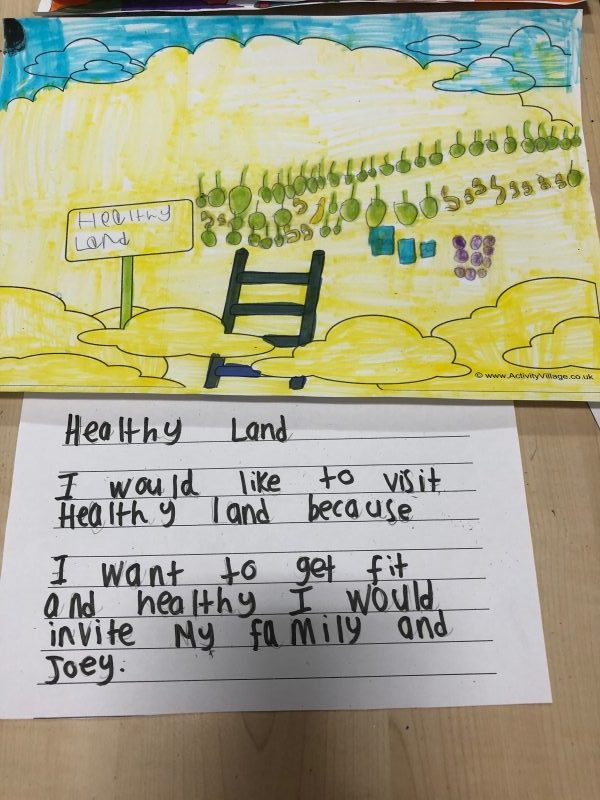 Healthy
Land
© www.ActivityVillage.co.uk
Healthy Land
I would like to visit
Healthy land because
I want to get fit
and healthy I would
invite My family and
Joey.